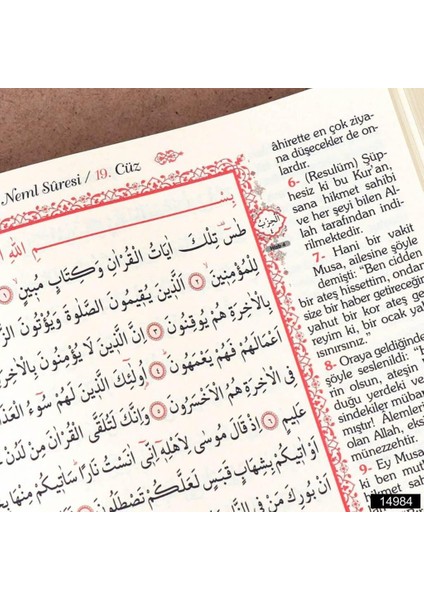 Neml Sûresi / 19. Cüz
بِسْمِ اللّٰهِ
طٰسٓ تِلْكَ اٰيَاتُ الْقُرْاٰنِ وَكِتَابٍ مُبٖينٍ ١
لِلْمُؤْمِنٖينَ ٢ اَلَّذٖينَ يُقٖيمُونَ الصَّلٰوةَ وَيُؤْتُونَ
بِالْاٰخِرَةِ هُمْ يُوقِنُونَ ٣ اِنَّ الَّذٖينَ لَا يُؤْمِنُونَ بِالْاٰخِرَةِ
اَعْمَالَهُمْ فَهُمْ يَعْمَهُونَ ٤ اُولٰٓئِكَ الَّذٖينَ لَهُمْ سُوٓءُ
فِى الْاٰخِرَةِ هُمُ الْاَخْسَرُونَ ٥ وَاِنَّكَ لَتُلَقَّى الْقُرْاٰنَ مِنْ لَدُنْ
عَلٖيمٍ ٦ اِذْ قَالَ مُوسٰى لِاَهْلِهٖٓ اِنّٖٓى اٰنَسْتُ نَارًا سَاٰتٖيكُمْ مِنْهَا
اَوْ اٰتٖيكُمْ بِشِهَابٍ قَبَسٍ لَعَلَّكُمْ تَصْطَلُونَ
اَنْ بُورِكَ مَنْ فِى النَّارِ
âhirette en çok ziya-
na düşecekler de on-
lardır.
6- (Resulüm) Şüp-
hesiz ki bu Kur'an,
sana hikmet sahibi
ve her şeyi bilen Al-
lah tarafından indi-
rilmektedir.
7- Hani bir vakit
Musa, ailesine şöyle
demişti: "Ben cidden
bir ateş hissettim, ondan
size bir haber getireceğim
yahut bir kor ateş ge-
reyim ki, bir ocak ya
sınırsınız."
8- Oraya geldiğinde
şöyle seslenildi:
rin olsun, ateşin
duğu yerdeki ve
sindekiler mübar
mıştır! Âlemleri
olan Allah, eksi
münezzehtir.
9- Ey Musa
ki ben mutl
hikmet sahi
14984